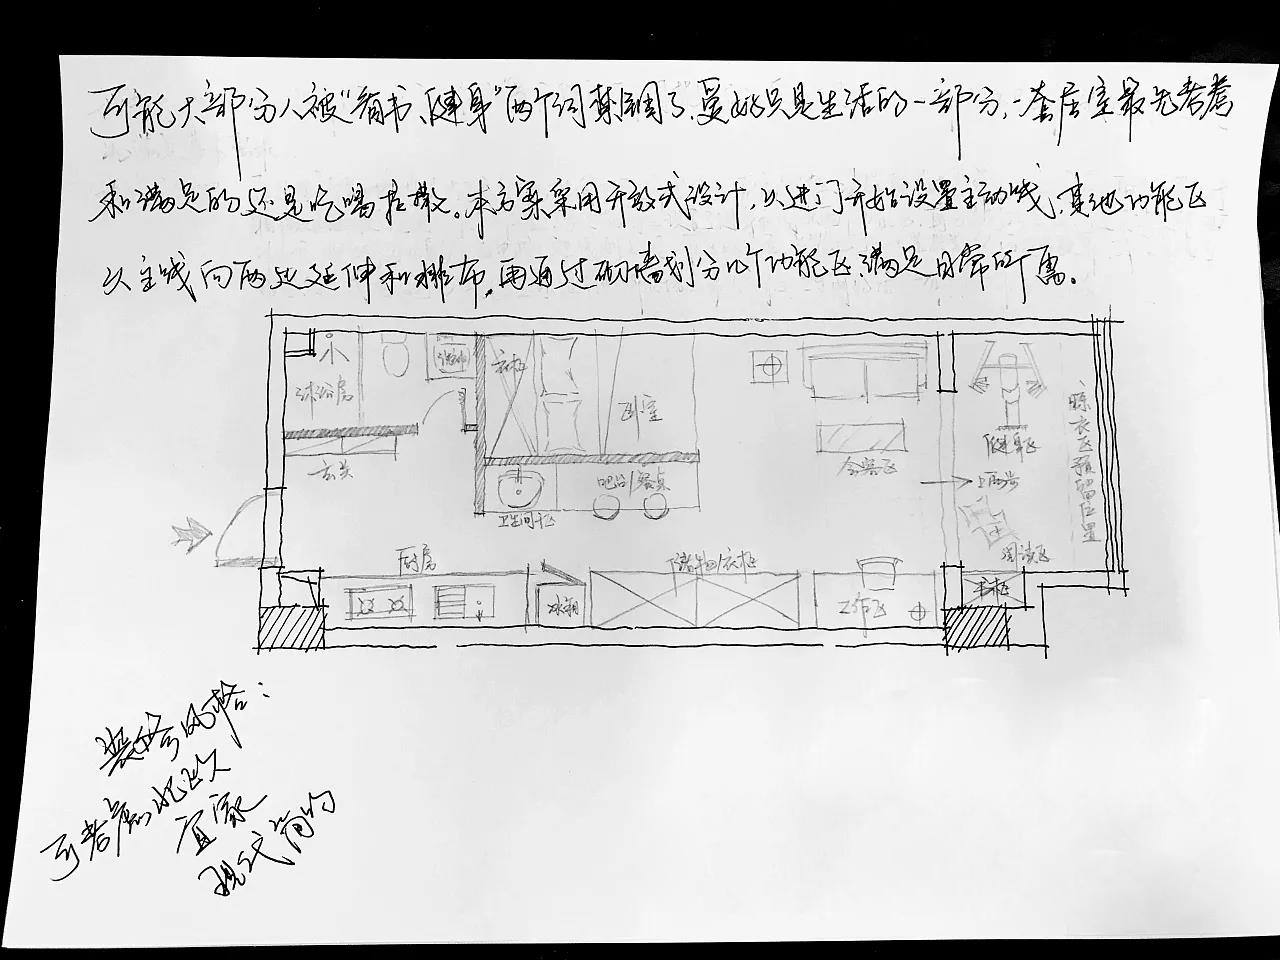 可能大部分人被"看书、健身"两个词禁锢了,爱好只是生活的一部分,一套居室最先考虑
和满足的还是吃喝拉撒。本方案采用开放式设计,以进门开始设置主动线,其他功能区
以主线向两边延伸和排布,再通过砌墙划分几个功能区,满足日常所需。
沐浴房
洗衣机
衣柜
卧室
玄关
卫生间干区
吧台/餐桌
会客区
健身区
上两步
阅读区
晾衣区预留位置
厨房
冰箱
储物/衣柜
工作区
书柜
装修风格:
可考虑北欧
宜家
现代简约